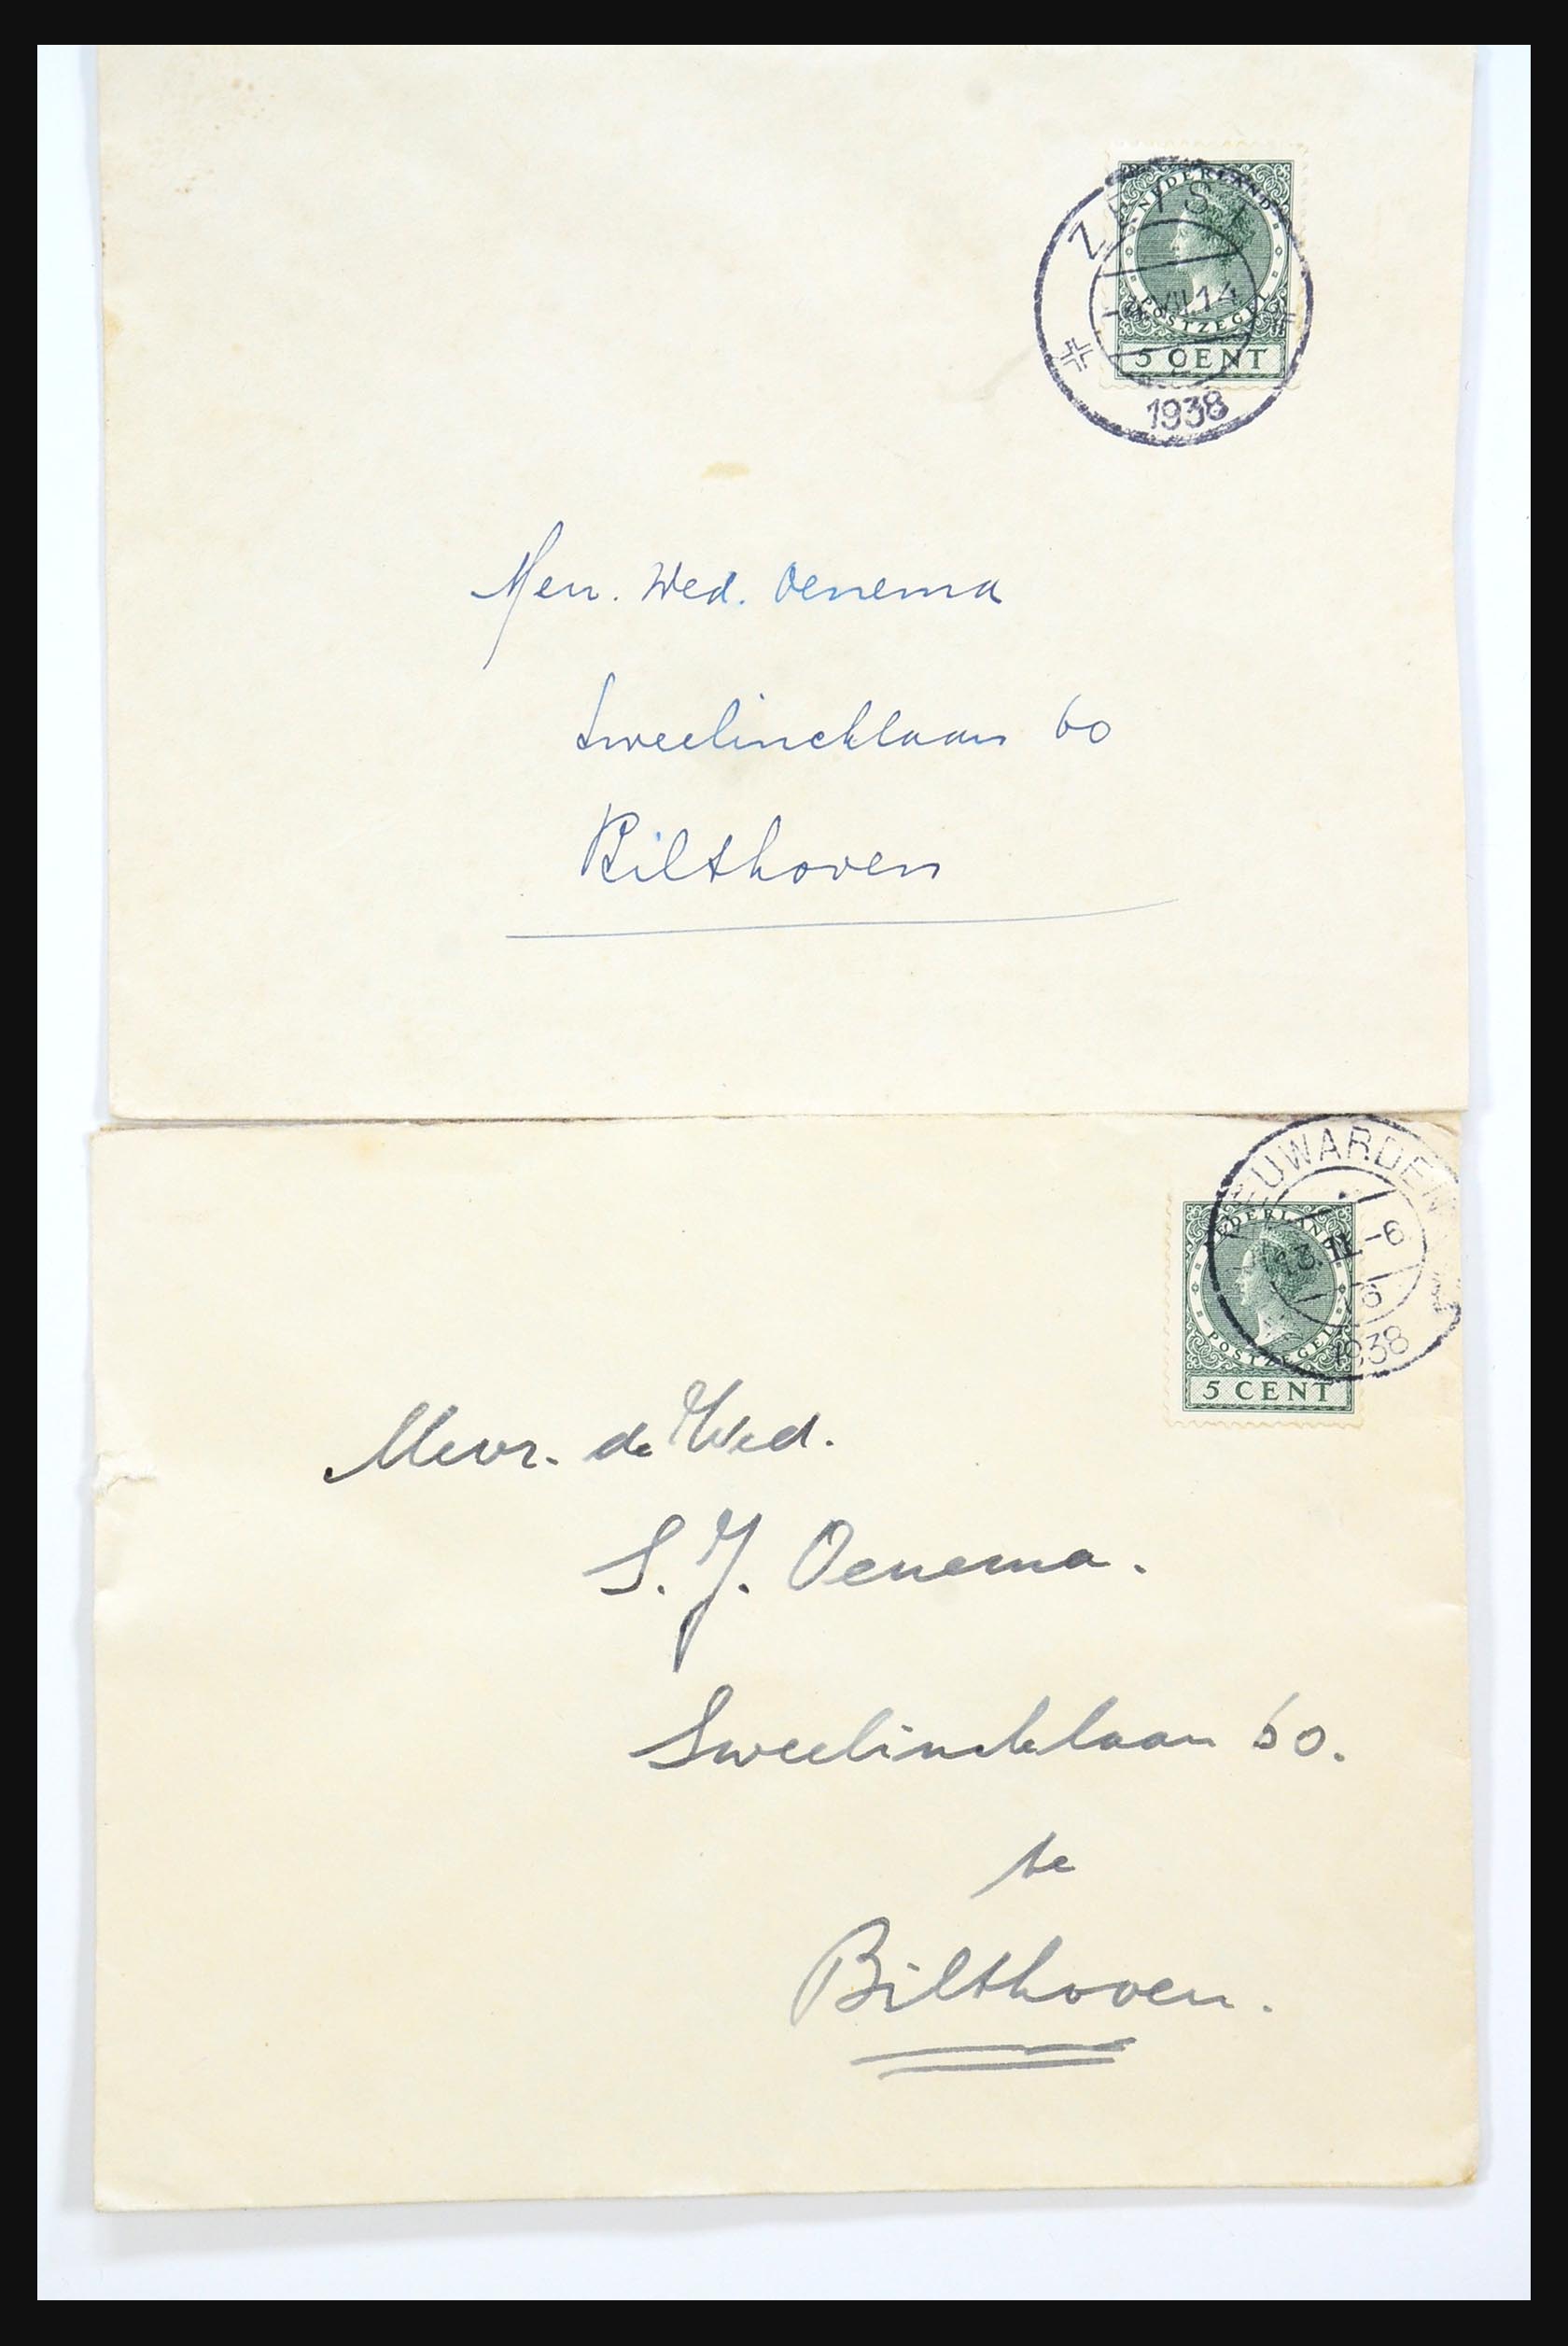 NEDERLAND
ZEIST
VIII.14
POSTZEGEL
5 CENT
1938
Mevr. Wed. Oenema
Sweelincklaan 60
Bilthoven
LEEUWARDEN
NEDERLAND
13.II -6
1938
POSTZEGEL
5 CENT
Mevr. de Wed.
S. J. Oenema.
Sweelincklaan 60.
te
Bilthoven.